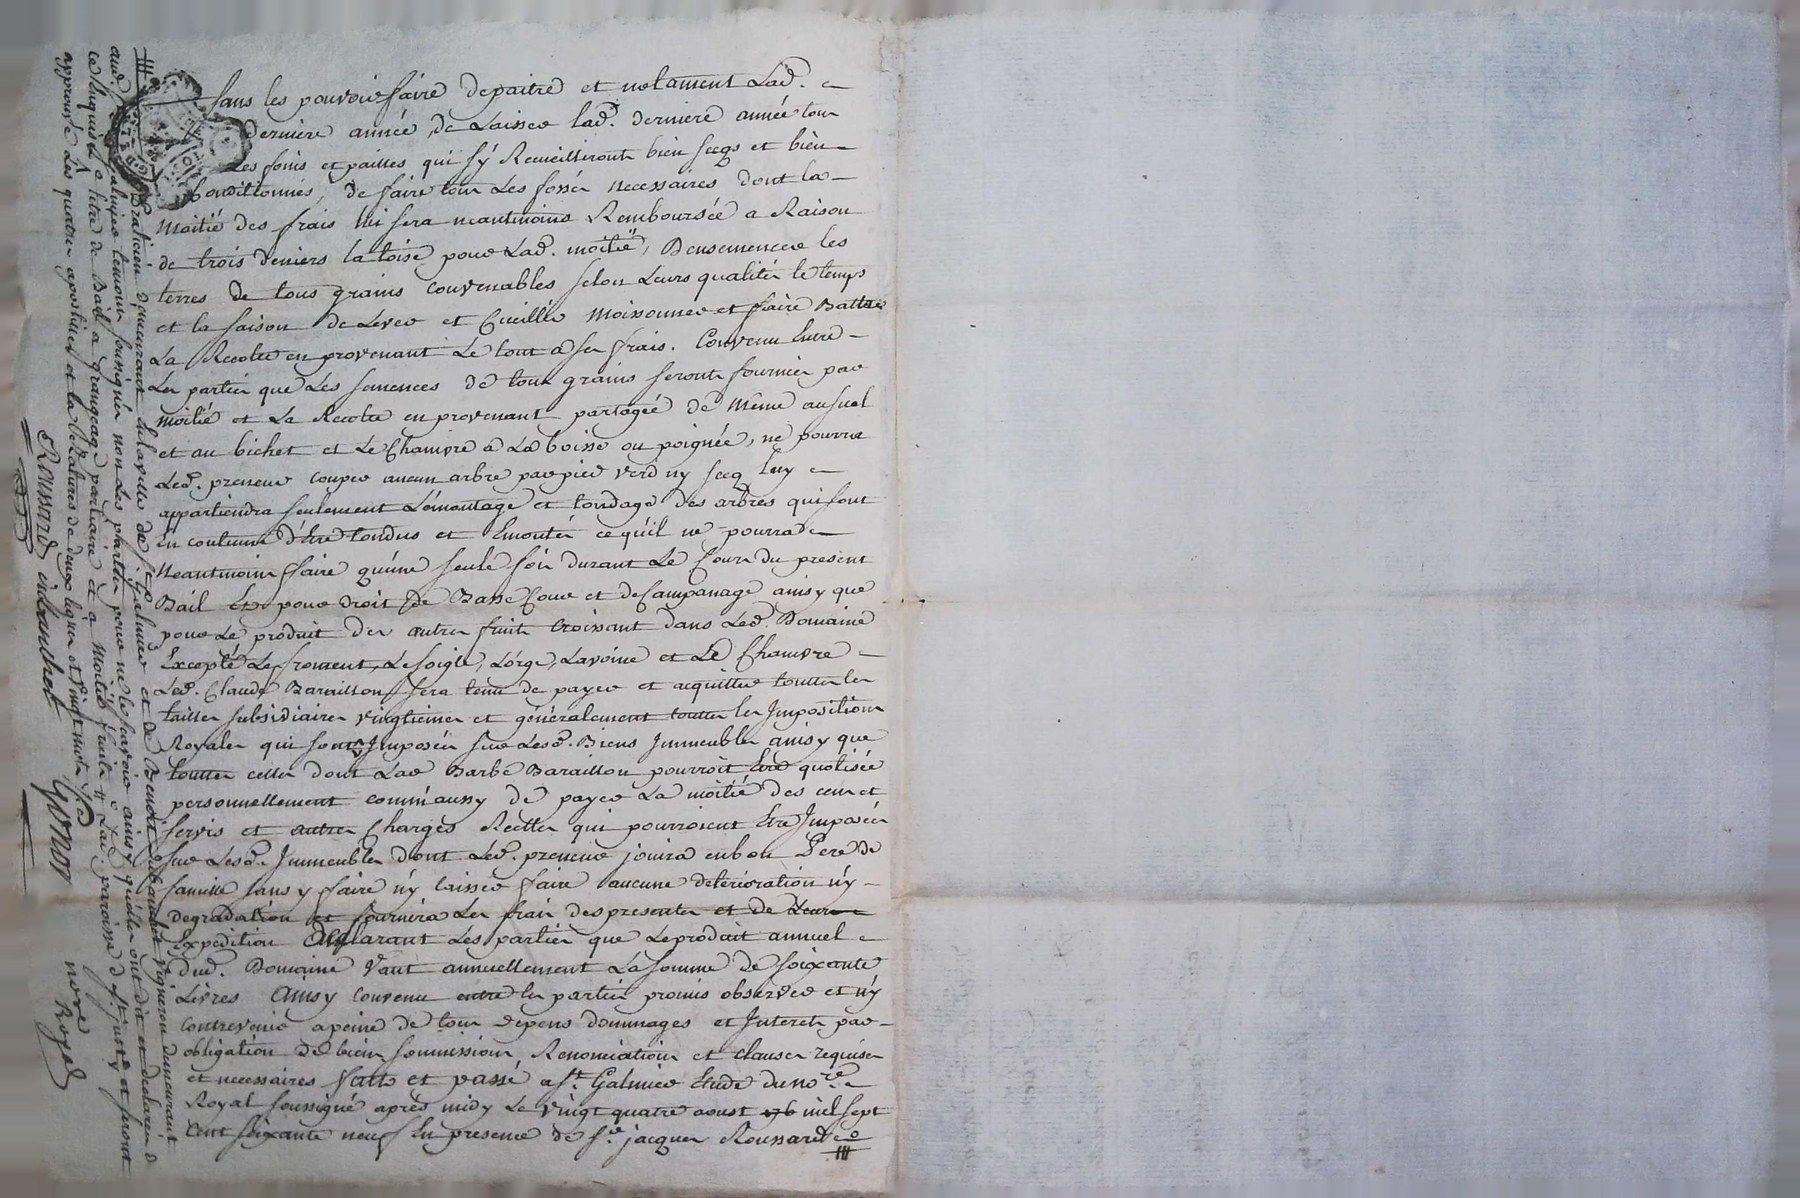 sans les pouvoir faire depaitre et notament Lad.
derniere année, de Laisser lad. derniere année tous
Les foins et pailles qui sy Recueilliront bien secqs et bien
Conditionnés, de faire tous Les fossés necessaires dont la
moitié des frais lui sera neantmoins Remboursée a Raison
de trois deniers la toise pour Lad. moitié, Densemencer les
terres de tous grains convenables selon Leurs qualités le temps
et la saison de Lever et Cueillir moissonner et faire Battre
La Recolte en provenant Le tout a ses frais. Convenu Entre
Les parties que Les semences de tous grains seront fournies par
moitié et La Recolte en provenant partagée de même au
et au bichet et Le Chanvre a La boisse ou poignée, ne pourra
Led. preneur couper aucun arbre par pied verd ny secq Luy
appartiendra seulement L'émontage et tondage des arbres qui sont
En coutume d'Etre tondus et Emontés ce qu'il ne pourra
Neantmoins faire qu'une seule fois durant Le Cours du present
Bail Et pour droit de Basse Cour et de Campanage ainsy que
pour Le produit des autres fruits croissant dans Led. Domaine
Excepté Le froment, Le soigle, L'orge, L'avoine et Le Chanvre
Led. Claude Barailton sera tenu de payer et acquitter touttes les
tailles subsidiaires vingtiemes et généralement touttes les Impositions
Royales qui sont Imposées sur Lesd. Biens Immeubles ainsy que
touttes celles dont Lad Barbe Barailton pourroit Etre quotisée
personnellement comm'aussy de payer La moitié des cens et
servis et autres Charges Reelles qui pourroient Etre Imposées
sur Lesd. Immeubles dont Led. preneur jouira en bon Pere de
famille sans y faire n'y laisser faire aucune deterioration n'y
degradation et fournira Les frais des presentes et de Leur
Expedition Declarant Les parties que Le produit annuel
dud. Domaine Vaut annuellement La somme de soixante
Livres Ainsy convenu entre les parties promis observer et n'y
contrevenir a peine de tous depens dommages et Interets par
obligation de biens soumissions Renonciations et clauses requises
et necessaires Fait et passé a St. Galmier Etude du nore.
Royal soussigné après midy Le vingt quatre aoust mil sept
Cent soixante neuf En presence de Sr. jacques Roussard
praticien demeurant en la ville de St. Galmier et de Benoit vigneron demeurant
aud. St. Galmier temoins soussignés non Les parties pour ne le scavoir ainsy qu'elles ont dit et declaré
ce Requis a titre de Bail a grangeage partiaire et a Moitié fruits Lad. paroisse de St. just et seront
approuvé Les quatre apostilles et la de deux lignes et vingt mots
Roussard
Gonon
nore
Royal